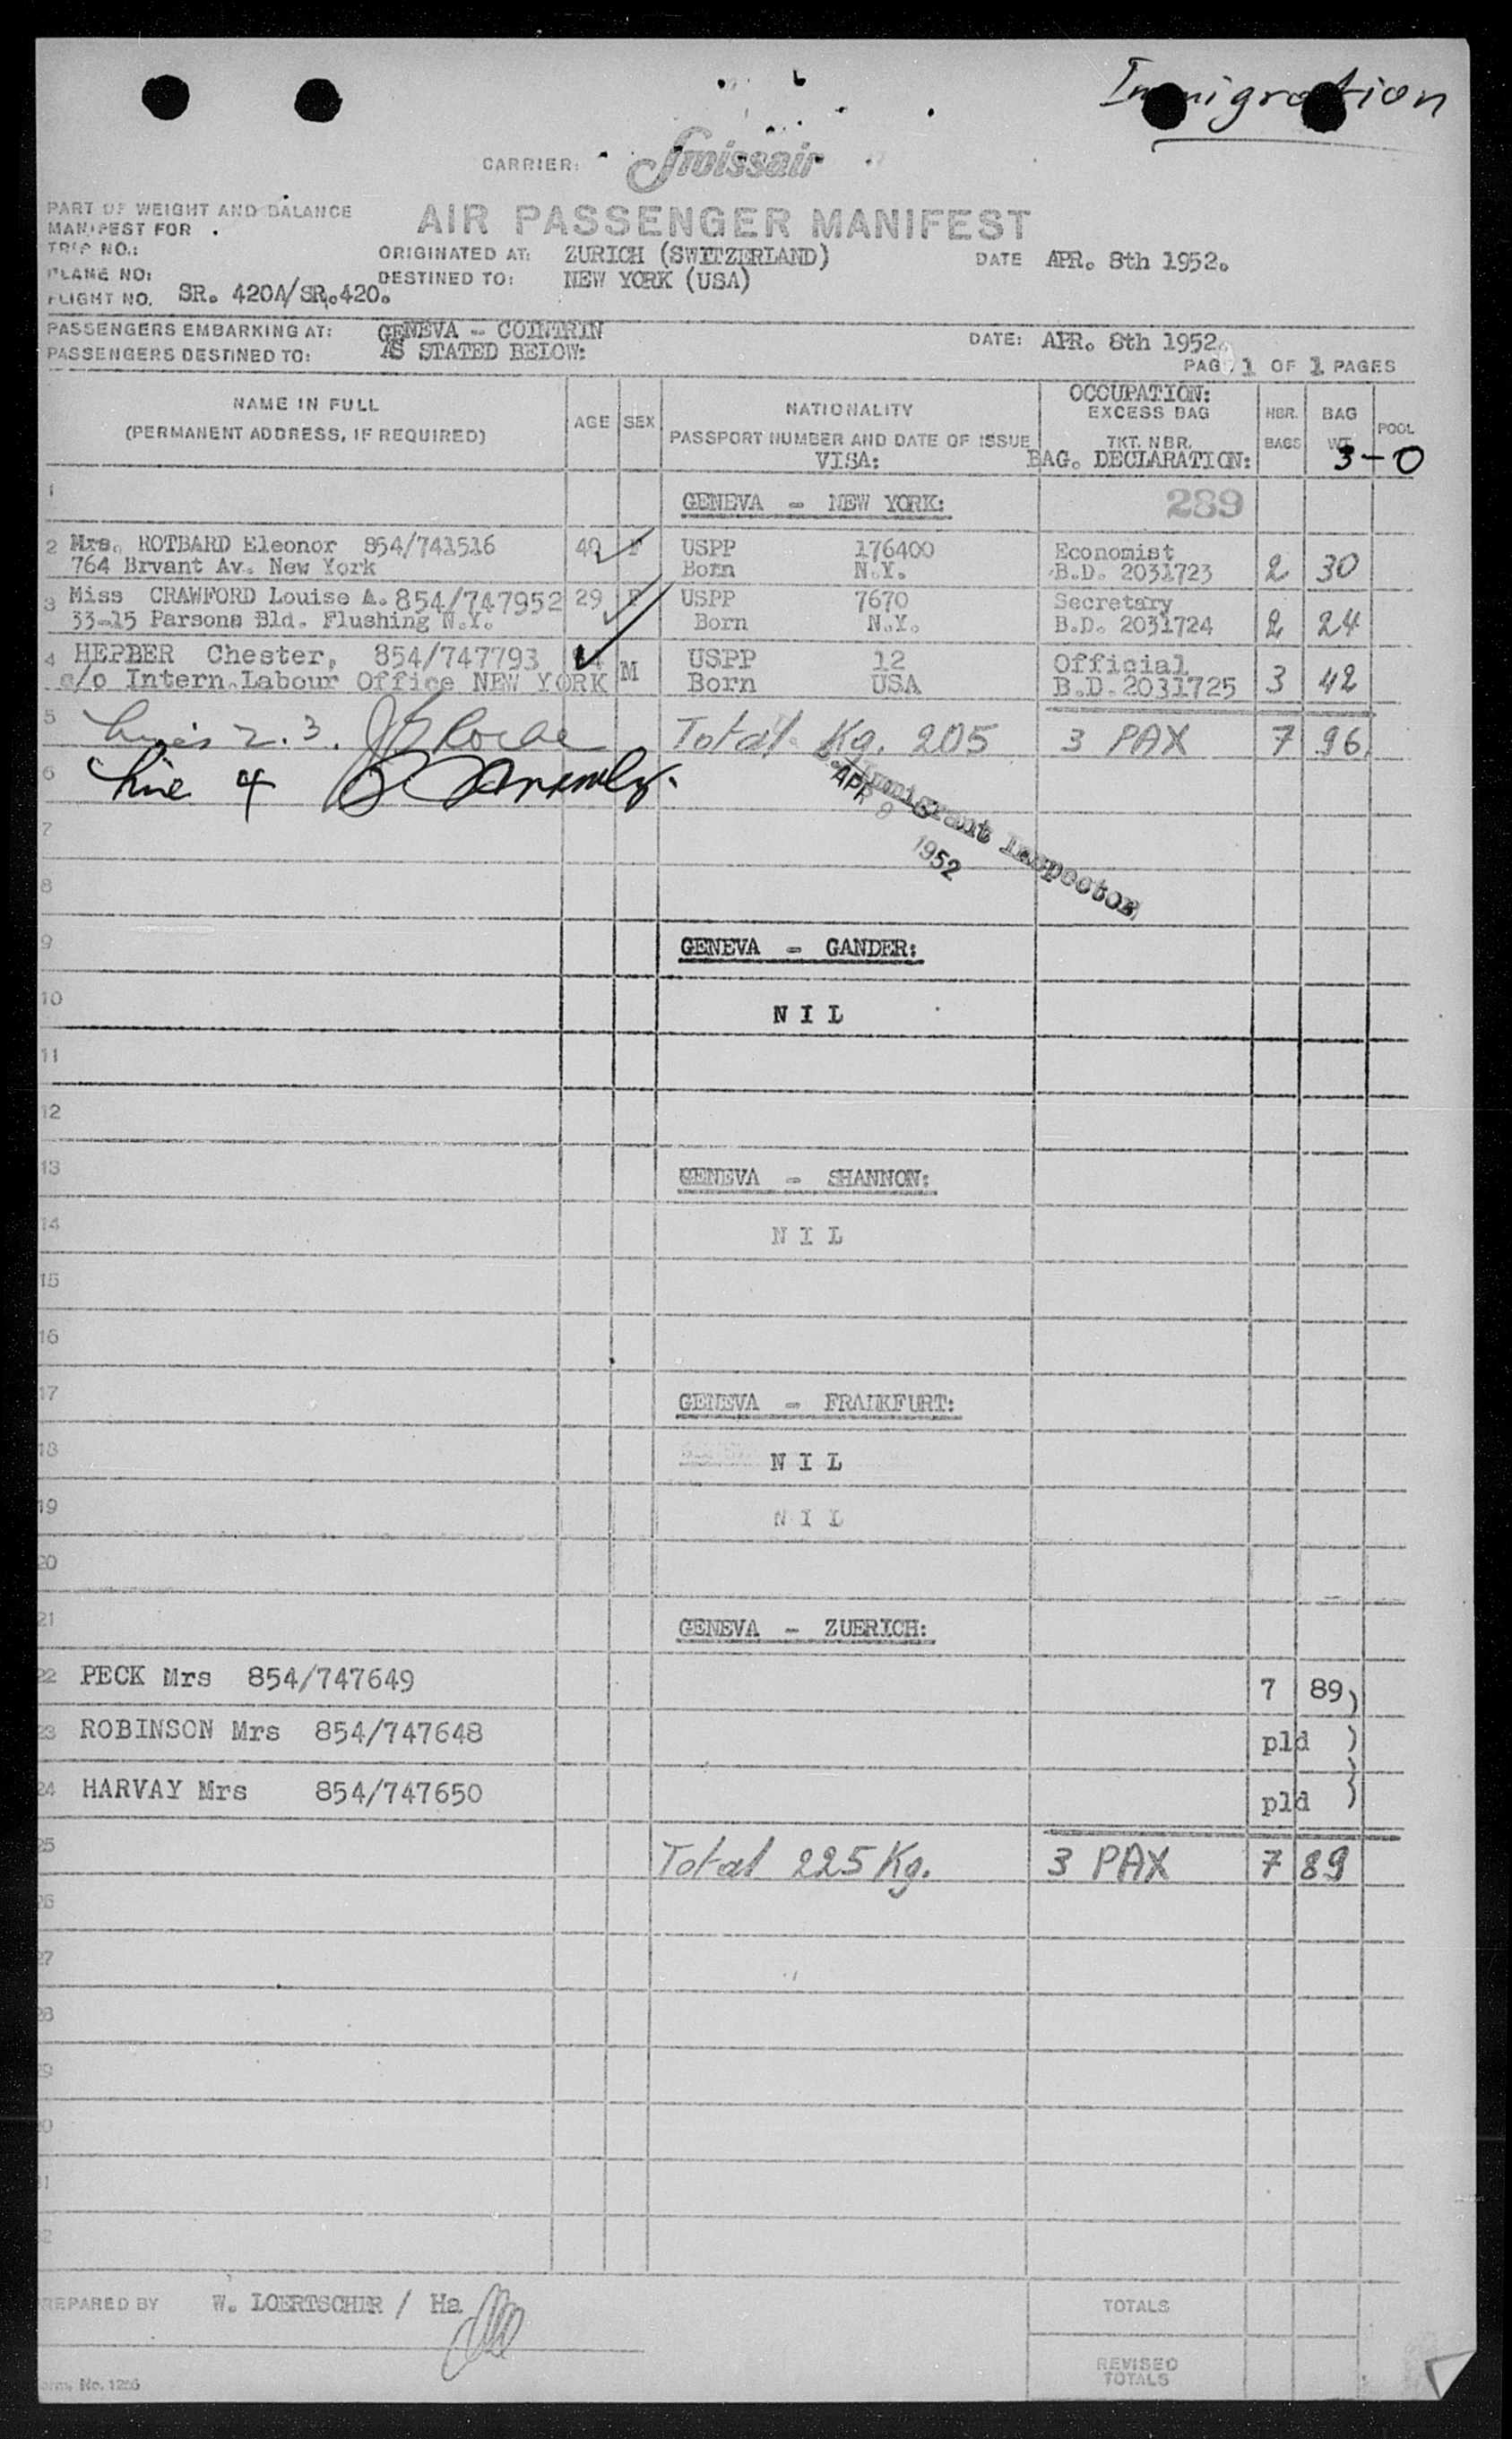 Immigration
CARRIER: Swissair
PART OF WEIGHT AND BALANCE
MANIFEST FOR
AIR PASSENGER MANIFEST
TRIP NO.:
ORIGINATED AT: ZURICH (SWITZERLAND) DATE APR. 8th 1952.
PLANE NO:
DESTINED TO: NEW YORK (USA)
FLIGHT NO. SR. 420A/SR.420.
PASSENGERS EMBARKING AT: GENEVA - COINTRIN DATE: APR. 8th 1952.
PASSENGERS DESTINED TO: AS STATED BELOW:
PAG 1 OF 1 PAGES
NAME IN FULL
(PERMANENT ADDRESS, IF REQUIRED)
AGE SEX
NATIONALITY
PASSPORT NUMBER AND DATE OF ISSUE
VISA:
OCCUPATION:
EXCESS BAG
TKT. NBR.
BAG. DECLARATION:
NBR. BAGS
BAG WT
POOL
3-0
1 GENEVA - NEW YORK: 289
2 Mrs. ROTBARD Eleonor 854/741516 40 F USPP 176400 Economist
764 Bryant Av. New York Born N.Y. B.D. 2031723 2 30
3 Miss CRAWFORD Louise A. 854/747952 29 F USPP 7670 Secretary
33-15 Parsons Bld. Flushing N.Y. Born N.Y. B.D. 2031724 2 24
4 HEPBER Chester, 854/747793 M USPP 12 Official
c/o Intern.Labour Office NEW YORK Born USA B.D.2031725 3 42
5 Lines 2.3. Total Kg. 205 3 PAX 7 96
6 Line 4
Immigrant Inspector
APR 9 1952
7
8
9 GENEVA - GANDER:
10 N I L
11
12
13 GENEVA - SHANNON:
14 N I L
15
16
17 GENEVA - FRANKFURT:
18 N I L
19 N I L
20
21 GENEVA - ZUERICH:
22 PECK Mrs 854/747649 7 89)
23 ROBINSON Mrs 854/747648 pld )
24 HARVAY Mrs 854/747650 pld )
25 Total 225 Kg. 3 PAX 7 89
26
27
28
9
0
1
2
REPARED BY W. LOERTSCHER / Ha
TOTALS
REVISED
TOTALS
orm No. 1256